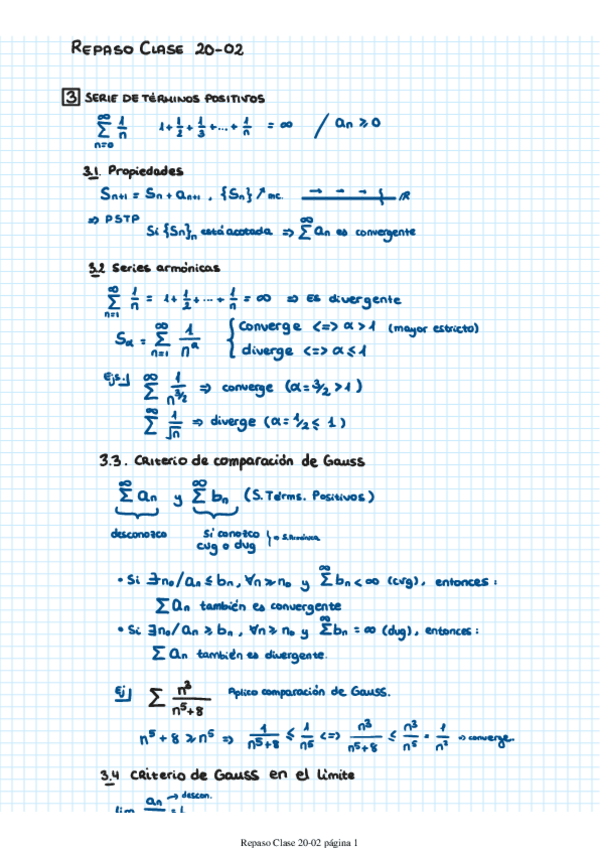 REPASO CLASE 20-02
3 SERIE DE TÉRMINOS POSITIVOS
∞ ∑ n=0 1/n   1 + 1/2 + 1/3 + ... + 1/n = ∞ / an ≥ 0
3.1. Propiedades
Sn+1 = Sn + an+1 , {Sn} ↗ mc. → → → R
⇒ PSTP
Si {Sn}n está acotada ⇒ ∞ ∑ an es convergente
3.2 Series armónicas
∞ ∑ n=1 1/n = 1 + 1/2 + ... + 1/n = ∞ ⇒ Es divergente
Sα = ∞ ∑ n=1 1/n^α { converge <=> α > 1 (mayor estricto)
diverge <=> α ≤ 1
Ejs.| ∞ ∑ 1/n^3/2 ⇒ converge (α = 3/2 > 1)
∞ ∑ 1/√n ⇒ diverge (α = 1/2 ≤ 1)
3.3. Criterio de comparación de Gauss
∞ ∑ an y ∞ ∑ bn (S. Térms. Positivos)
desconozco   Si conozco
cvg o dvg
• Si ∃n₀ / an ≤ bn, ∀n ≥ n₀ y ∞ ∑ bn < ∞ (cvg), entonces:
∑ an también es convergente
• Si ∃n₀ / an ≥ bn, ∀n ≥ n₀ y ∞ ∑ bn = ∞ (dvg), entonces:
∑ an también es divergente.
Ej| ∑ n³/(n⁵+8) Aplico comparación de Gauss.
n⁵ + 8 ≥ n⁵ ⇒ 1/(n⁵+8) ≤ 1/n⁵ <=> n³/(n⁵+8) ≤ n³/n⁵ = 1/n² ⇒ converge.
3.4 Criterio de Gauss en el límite
an → descon.
lim
Repaso Clase 20-02 página 1